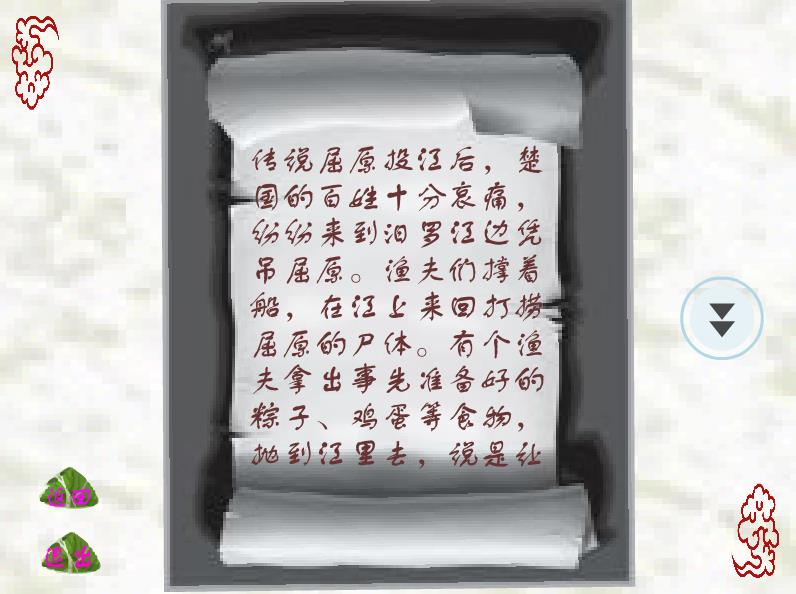 传说屈原投江后，楚
国的百姓十分哀痛，
纷纷来到汨罗江边凭
吊屈原。渔夫们撑着
船，在江上来回打捞
屈原的尸体。有个渔
夫拿出事先准备好的
粽子、鸡蛋等食物，
抛到江里去，说是让
返回
退出